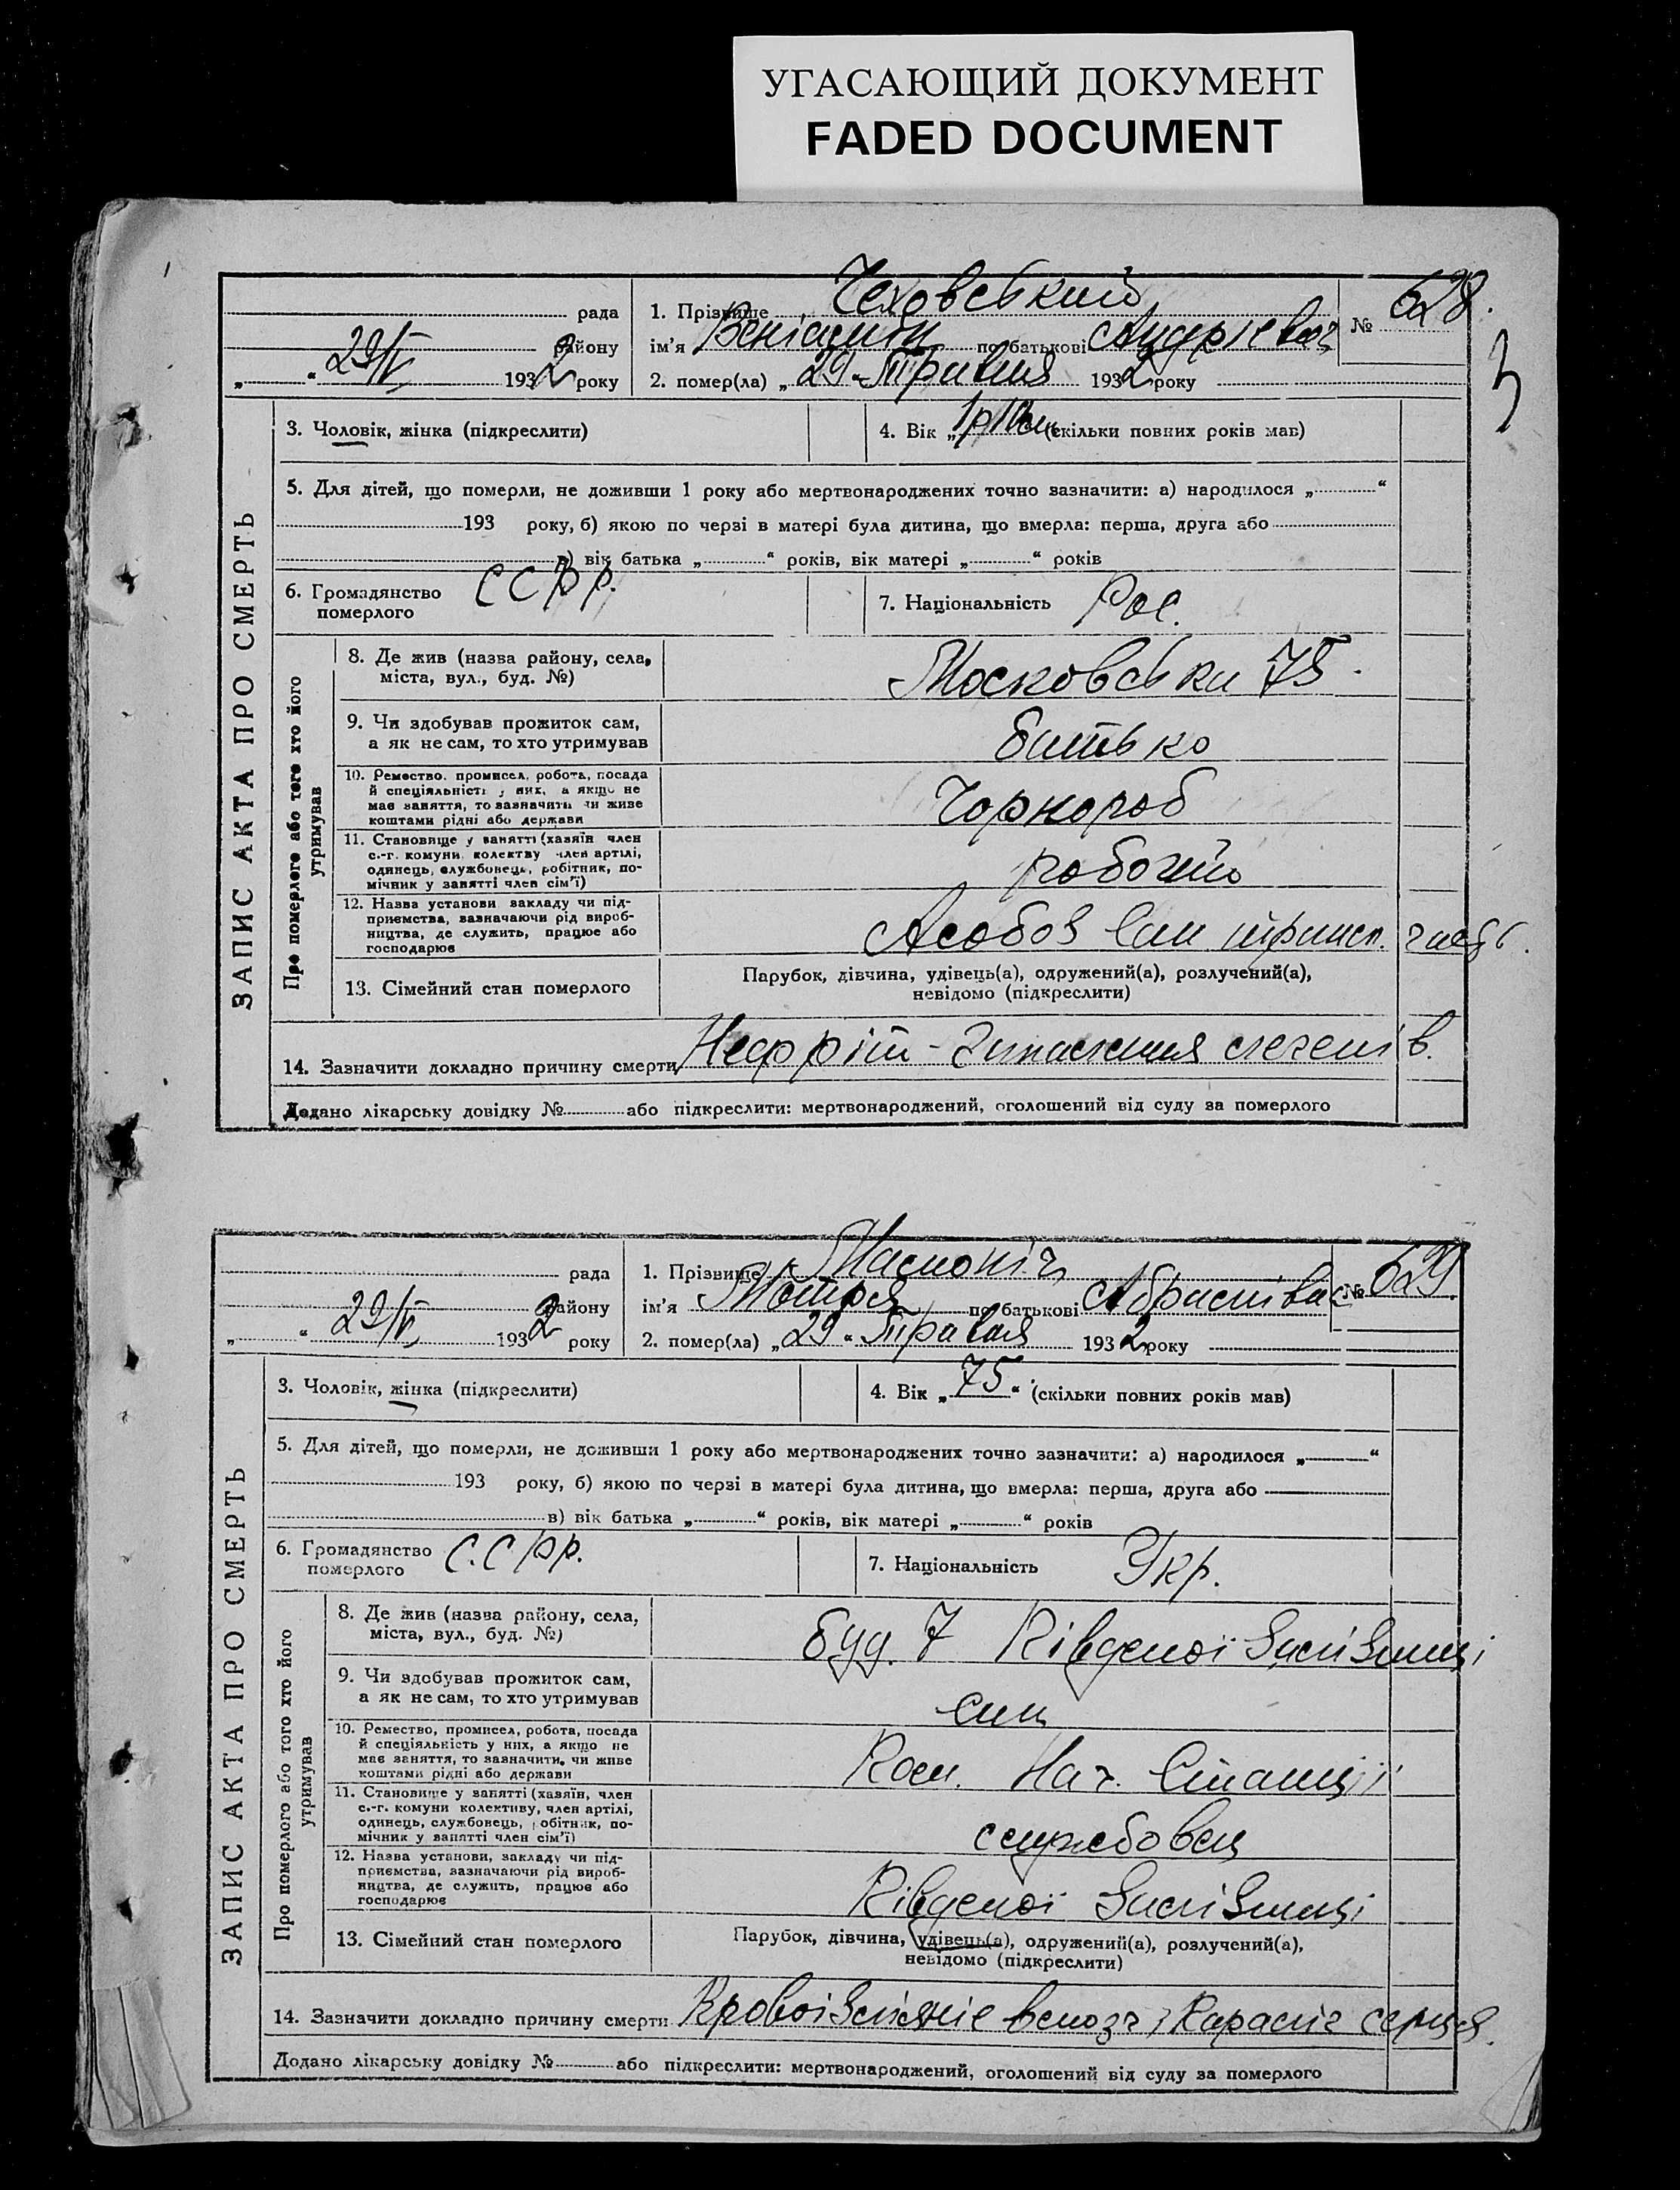 УГАСАЮЩИЙ ДОКУМЕНТ
FADED DOCUMENT
ЗАПИС АКТА ПРО СМЕРТЬ
рада
району
29/V 1932 року
1. Прізвище Чеховський
№ 628.
3
ім'я Веніамін по батькові Андрієвич
2. помер(ла) „29“ Травня 1932 року
3. Чоловік, жінка (підкреслити)
4. Вік „1р “ (скільки повних років мав)
5. Для дітей, що померли, не доживши 1 року або мертвонароджених точно зазначити: а) народилося „ “
193 року, б) якою по черзі в матері була дитина, що вмерла: перша, друга або
в) вік батька „ “ років, вік матері „ “ років
6. Громадянство померлого ССРР.
7. Національність Рос.
Про померлого або того хто його утримував
8. Де жив (назва району, села,
міста, вул., буд. №)
Московська 75.
9. Чи здобував прожиток сам,
а як не сам, то хто утримував
батько
10. Ремество, промисел, робота, посада
й спеціяльність у них, а якщо не
має заняття, то зазначити чи живе
коштами рідні або держави
Чорнороб
11. Становище у занятті (хазяїн член
с.-г. комуни колективу член артілі,
одинець, службовець, робітник, по-
мічник у занятті член сім'ї)
робочий
12. Назва установи закладу чи під-
приємства, зазначаючи рід вироб-
ництва, де служить, працює або
господарює
13. Сімейний стан померлого
Парубок, дівчина, удівець(а), одружений(а), розлучений(а),
невідомо (підкреслити)
14. Зазначити докладно причину смерти Нефріт - Запалення легенів.
Додано лікарську довідку № або підкреслити: мертвонароджений, оголошений від суду за померлого
ЗАПИС АКТА ПРО СМЕРТЬ
рада
району
29/V 1932 року
1. Прізвище
№ 629.
ім'я Мотря по батькові
2. помер(ла) „29“ Травня 1932 року
3. Чоловік, жінка (підкреслити)
4. Вік „75“ (скільки повних років мав)
5. Для дітей, що померли, не доживши 1 року або мертвонароджених точно зазначити: а) народилося „ “
193 року, б) якою по черзі в матері була дитина, що вмерла: перша, друга або
в) вік батька „ “ років, вік матері „ “ років
6. Громадянство померлого С.СРР.
7. Національність Укр.
Про померлого або того хто його утримував
8. Де жив (назва району, села,
міста, вул., буд. №)
буд. 7 Південої Залізниці
9. Чи здобував прожиток сам,
а як не сам, то хто утримував
син
10. Ремество, промисел, робота, посада
й спеціяльність у них, а якщо не
має заняття, то зазначити, чи живе
коштами рідні або держави
Пом. Нач. Станції
11. Становище у занятті (хазяїн, член
с.-г. комуни колективу, член артілі,
одинець, службовець, робітник, по-
мічник у занятті член сім'ї)
службовец
12. Назва установи, закладу чи під-
приємства, зазначаючи рід вироб-
ництва, де служить, працює або
господарює
Південої Залізниці
13. Сімейний стан померлого
Парубок, дівчина, удівець(а), одружений(а), розлучений(а),
невідомо (підкреслити)
14. Зазначити докладно причину смерти в мозг, Параліч серця.
Додано лікарську довідку № або підкреслити: мертвонароджений, оголошений від суду за померлого